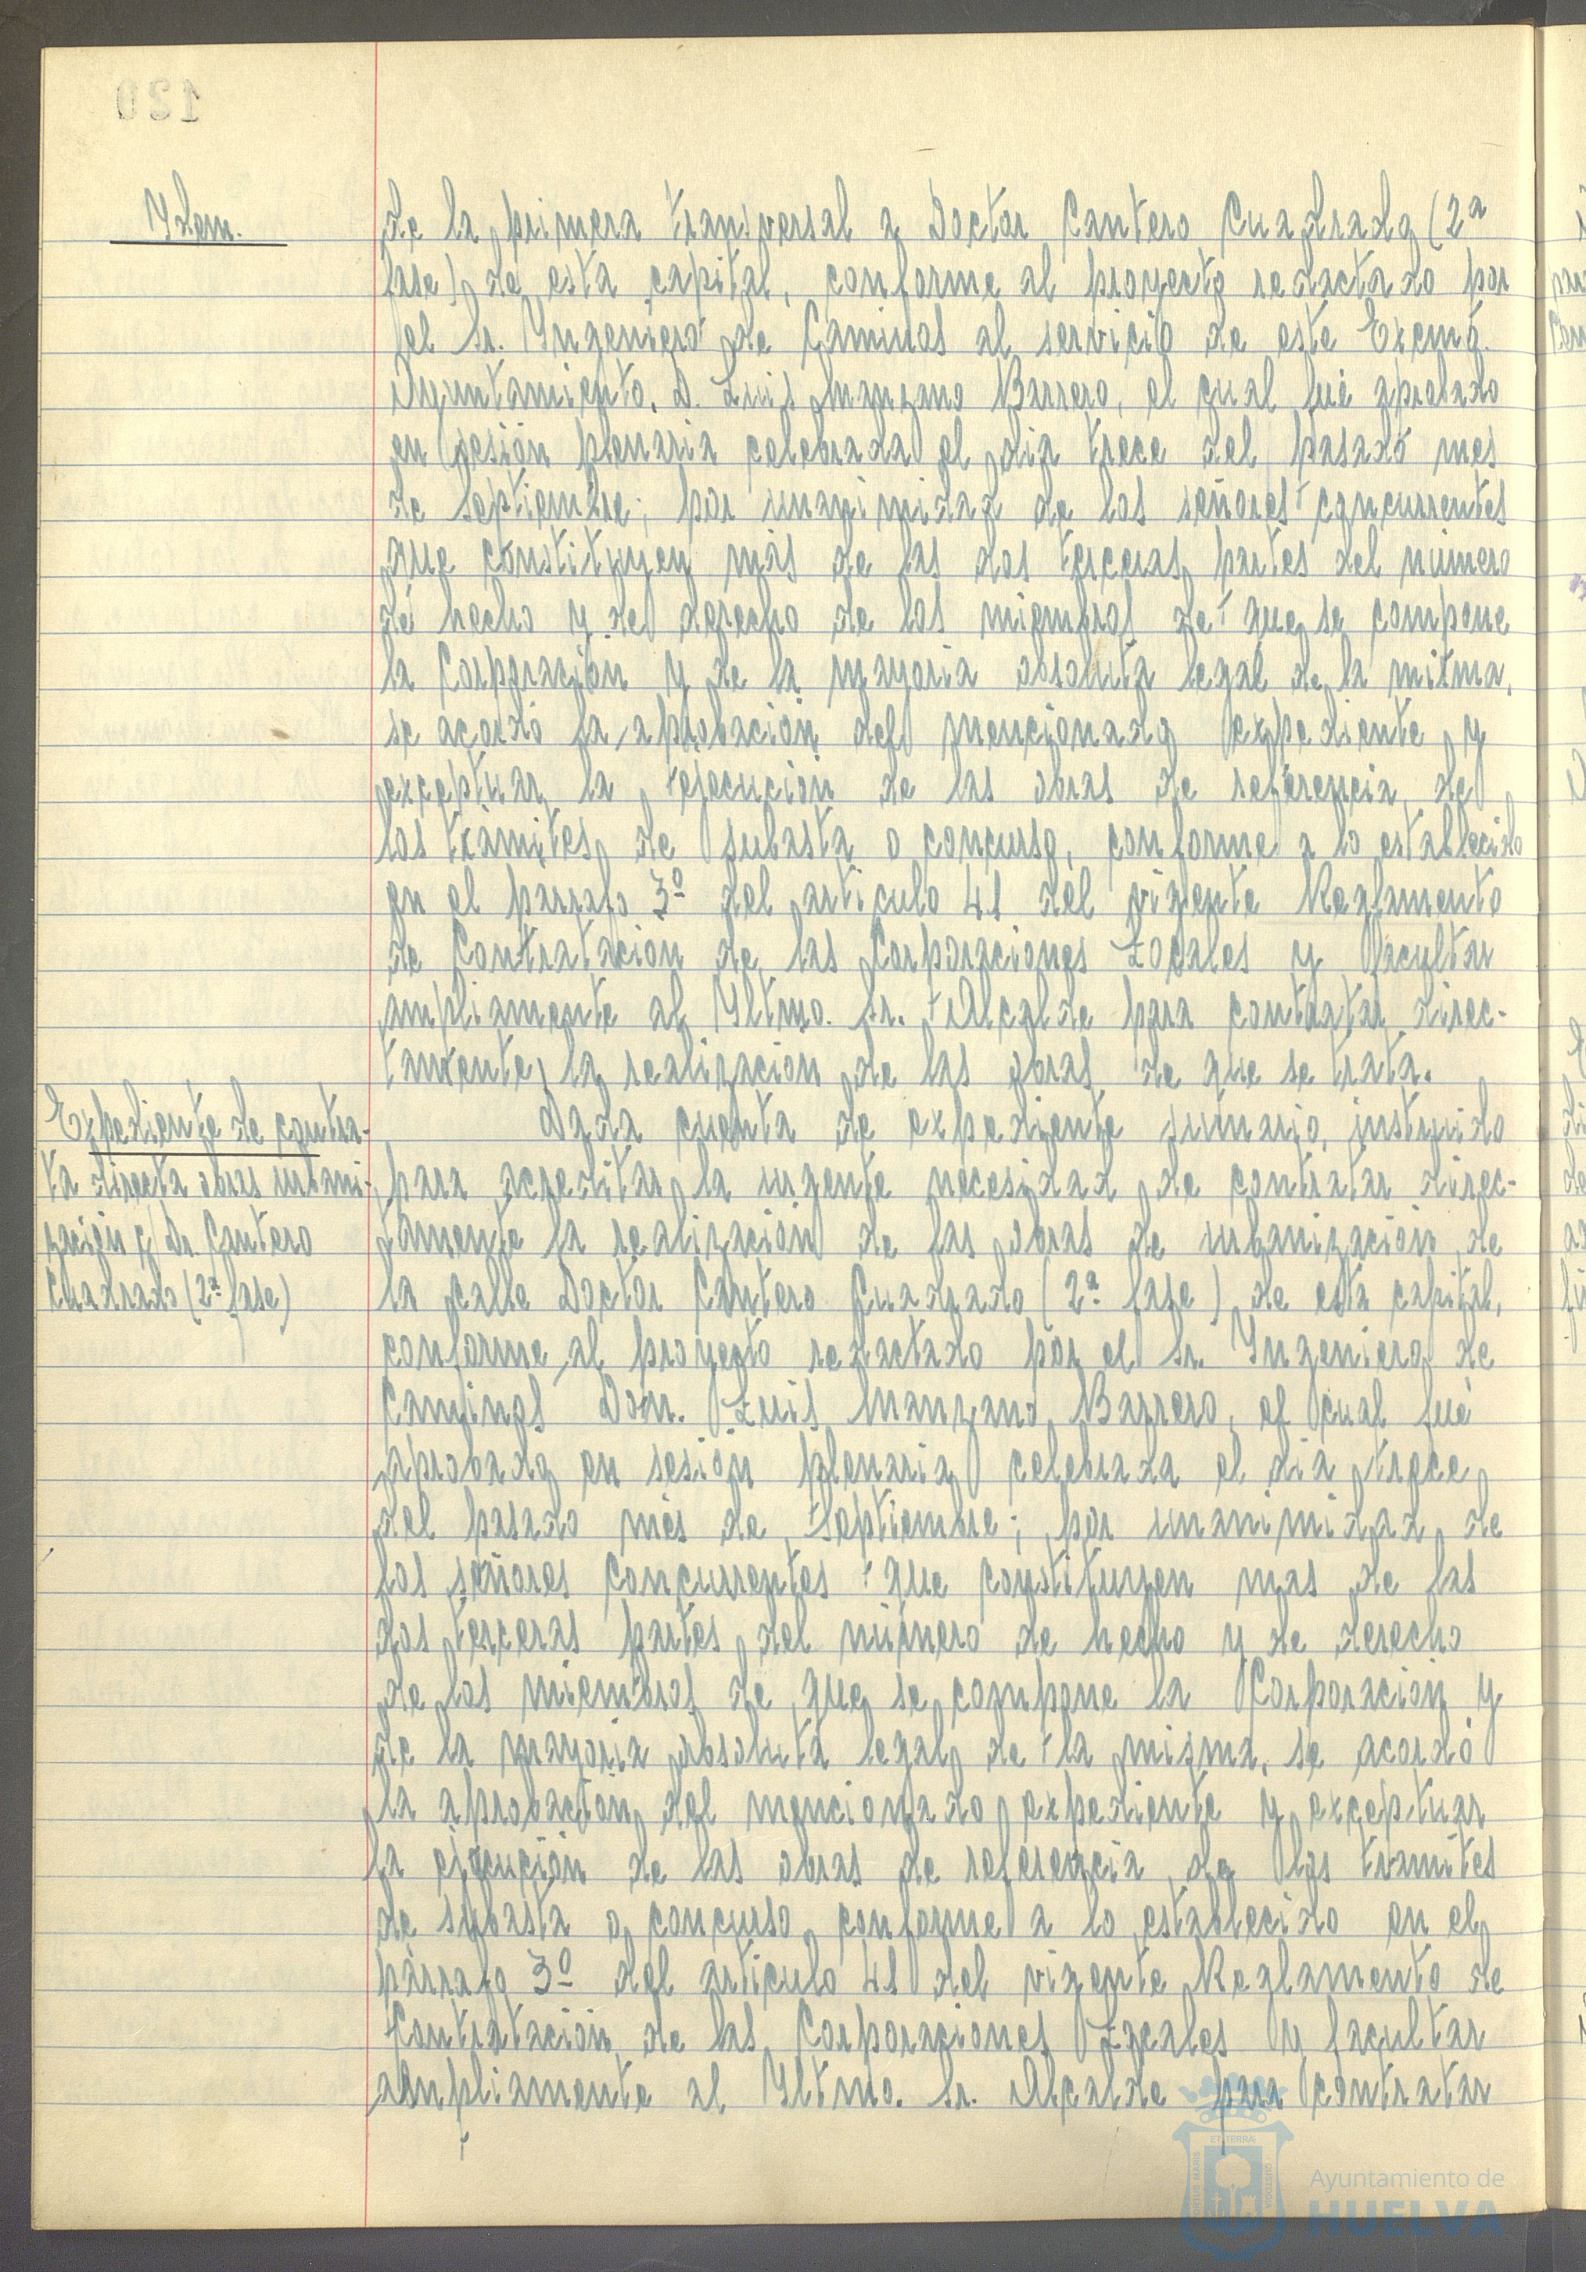 120
Ydem.
de la primera transversal a Doctor Cantero Cuadrado (2ª
fase) de esta capital, conforme al proyecto redactado por
el Sr. Yngeniero de Caminos al servicio de este Excmo.
Ayuntamiento, D. Luis Manzano Barrero, el cual fué aprobado
en sesión plenaria celebrada el dia trece del pasado mes
de Septiembre; por unanimidad de los señores concurrentes
que constituyen más de las dos terceras partes del número
de hecho y de derecho de los miembros de que se compone
la Corporación y de la mayoria absoluta legal de la misma,
se acordó la aprobación del mencionado expediente y
exceptuar la ejecución de las obras de referencia, de
los trámites de subasta o concurso, conforme a lo establecido
en el párrafo 3º del articulo 41 del vigente Reglamento
de Contratación de las Corporaciones Locales y facultar
ampliamente al Yltmo. Sr. Alcalde para contratar direc-
tamente la realización de las obras de que se trata.
Expediente de contra-
ta directa obras urbani-
zación c/ Dr. Cantero
Cuadrado (2ª fase)
Dada cuenta de expediente sumario, instruido
para acreditar la urgente necesidad de contratar direc-
tamente la realización de las obras de urbanización de
la calle Doctor Cantero Cuadrado (2ª fase) de esta capital,
conforme al proyecto redactado por el Sr. Yngeniero de
Caminos Don. Luis Manzano Barrero, el cual fué
aprobado en sesión plenaria celebrada el dia trece
del pasado mes de Septiembre; por unanimidad de
los señores concurrentes que constituyen mas de las
dos terceras partes del número de hecho y de derecho
de los miembros de que se compone la Corporación y
de la mayoria absoluta legal de la misma, se acordó
la aprobación del mencionado expediente y exceptuar
la ejecución de las obras de referencia de los tramites
de subasta o concurso conforme a lo establecido en el
párrafo 3º del articulo 41 del vigente Reglamento de
Contratación de las Corporaciones Locales y facultar
ampliamente al Yltmo. Sr. Alcalde para contratar
Ayuntamiento de
HUELVA